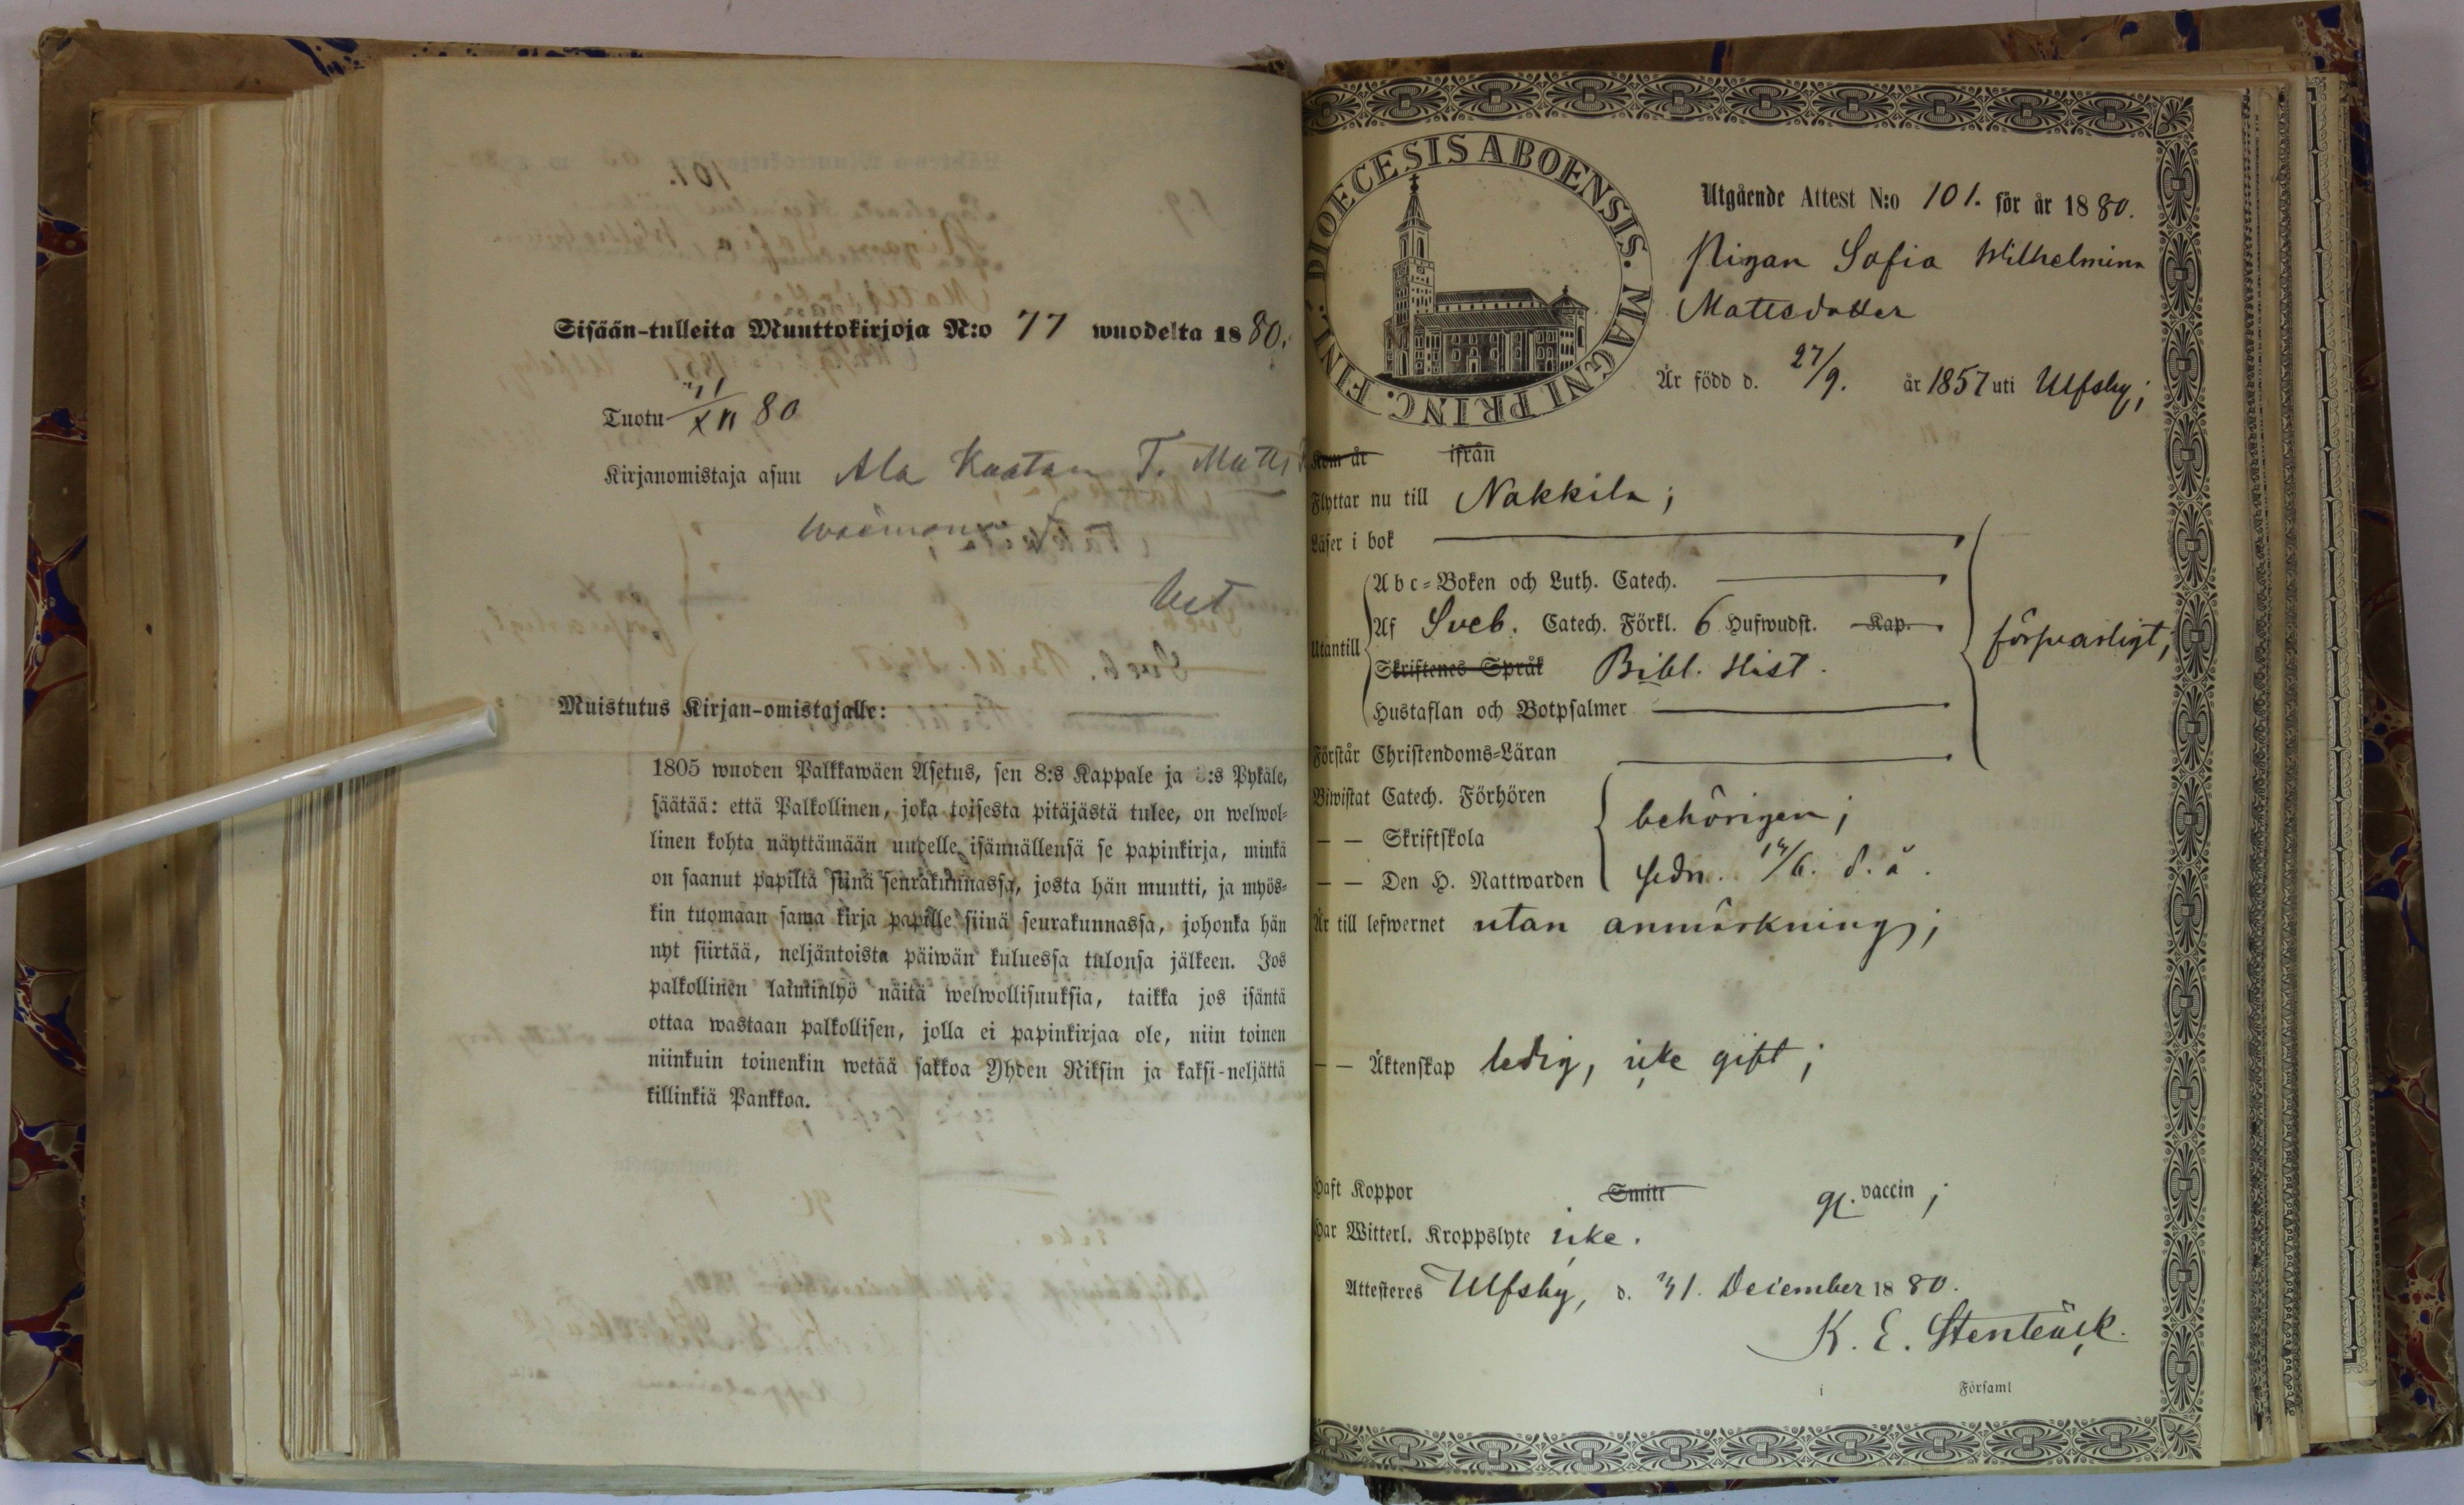 Sisään-tulleita Muuttokirjoja N:o 77 wuodelta 1880.
Tuotu 80
Kirjanomistaja asuu Ala Kaatan T. Matts
Muistutus Kirjan-omistajalle:
1805 wuoden Palkkawäen Asetus, sen 8:s Kappale ja 3:s Pykäle,
säätää: että Palkollinen, joka toisesta pitäjästä tulee, on welwol-
linen kohta näyttämään uudelle isännällensä se papinkirja, minkä
on saanut papilta siinä seurakunnassa, josta hän muutti, ja myös-
kin tuomaan sama kirja papille siinä seurakunnassa, johonka hän
nyt siirtää, neljäntoista päiwän kuluessa tulonsa jälkeen. Jos
palkollinen laiminlyö näitä welwollisuuksia, taikka jos isäntä
ottaa wastaan palkollisen, jolla ei papinkirjaa ole, niin toinen
niinkuin toinenkin wetää sakkoa Yhden Riksin ja kaksi-neljättä
killinkiä Pankkoa.
FINL. DIOECESIS ABOENSIS. MAGNI PRINC.
Utgående Attest N:o 101. för år 1880.
Pigan Sofia Wilhelmina
Mattsdotter
Är född d. 27/9. år 1857 uti Ulfsby;
Kom år ifrån
Flyttar nu till Nakkila;
Läser i bok
Utantill
Abc-Boken och Luth. Catech.
Af Sveb. Catech. Förkl. 6 Hufwudst. Kap.
Skriftenes Språk Bibl. Hist.
Hustaflan och Botpsalmer
försvarligt;
Förstår Christendoms-Läran
Biwistat Catech. Förhören behörigen;
— — Skriftskola
— — Den H. Nattwarden sedn. /6. d. å.
Är till lefwernet utan anmärkning;
— — Äktenskap ledig, icke gift;
Haft Koppor Smitt gl. vaccin;
Har Witterl. Kroppslyte icke.
Attesteres Ulfsby, d. 31. December 1880.
K. E. Stenbäck.
i Församl